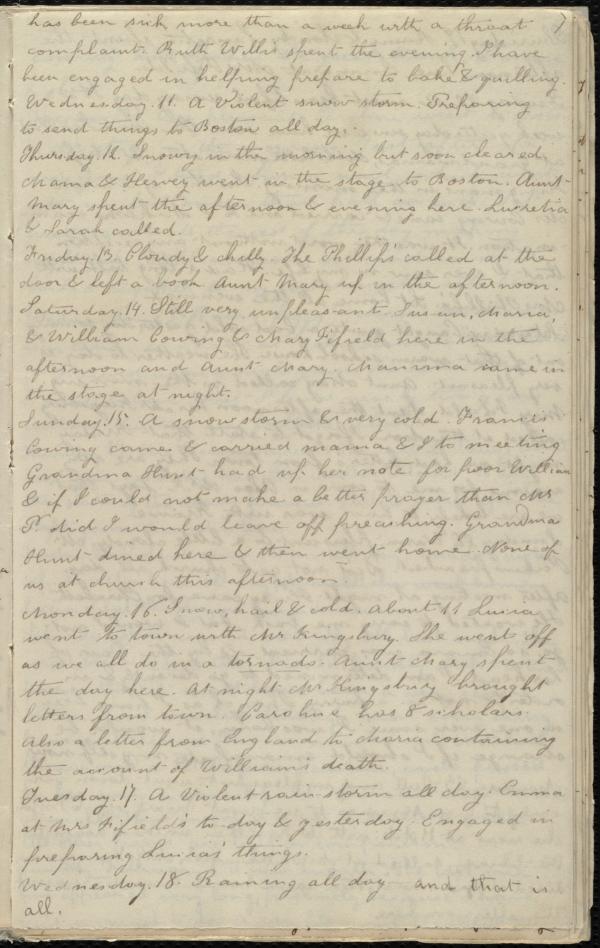 7
has been sick more than a week with a throat
complaint. Ruth Willis spent the evening. I have
been engaged in helping prepare to bake & quilling.
Wednesday. 11. A Violent snow storm. Preparing
to send things to Boston all day.
Thursday. 12. Snowy in the morning but soon cleared.
Mama & Hervey went in the stage to Boston. Aunt
Mary spent the afternoon & evening here. Lucretia
& Sarah called.
Friday. 13. Cloudy & chilly. The Phillips called at the
door & left a book. Aunt Mary up in the afternoon.
Saturday. 14. Still very unpleasant. Susan, Maria,
& William Cowing & Mary Fifield here in the
afternoon and Aunt Mary. Mamma came in
the stage at night.
Sunday. 15. A snow storm & very cold. Francis
Cowing came & carried mama & I to meeting
Grandma Hunt had up her note for poor William
& if I could not make a better prayer than Mr
P. did I would leave off preaching. Grandma
Hunt dined here & then went home. None of
us at church this afternoon
Monday. 16. Snow, hail & cold. About 11 Lucia
went to town with Mr Kingsbury. She went off
as we all do in a tornado. Aunt Mary spent
the day here. At night Mr Kingsbury brought
letters from town. Caroline has 8 scholars.
Also a letter from England to Maria containing
the account of William's death.
Tuesday. 17. A Violent rain storm all day. Emma
at Mrs Fifield's to-day & yesterday. Engaged in
preparing Lucia's things.
Wednesday. 18. Raining all day and that is
all.